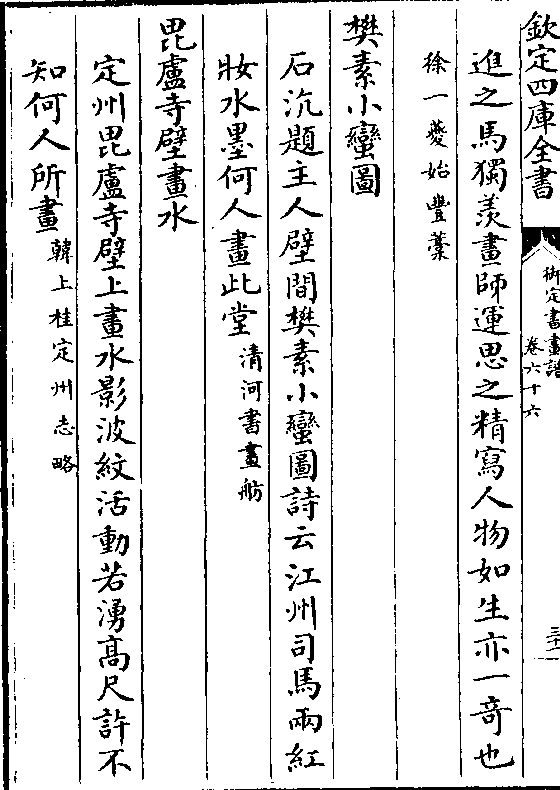 欽定四庫全書
御定書畫譜
卷六十六
進之馬獨羡畫師運思之精寫人物如生亦一竒也
徐一夔始豐藁
樊素小蠻圖
石沆題主人壁間樊素小蠻圖詩云江州司馬兩紅
妝水墨何人畫此堂清河書畫舫
毘盧寺壁畫水
定州毘盧寺壁上畫水影波紋活動若湧髙尺許不
知何人所畫韓上桂定州志略